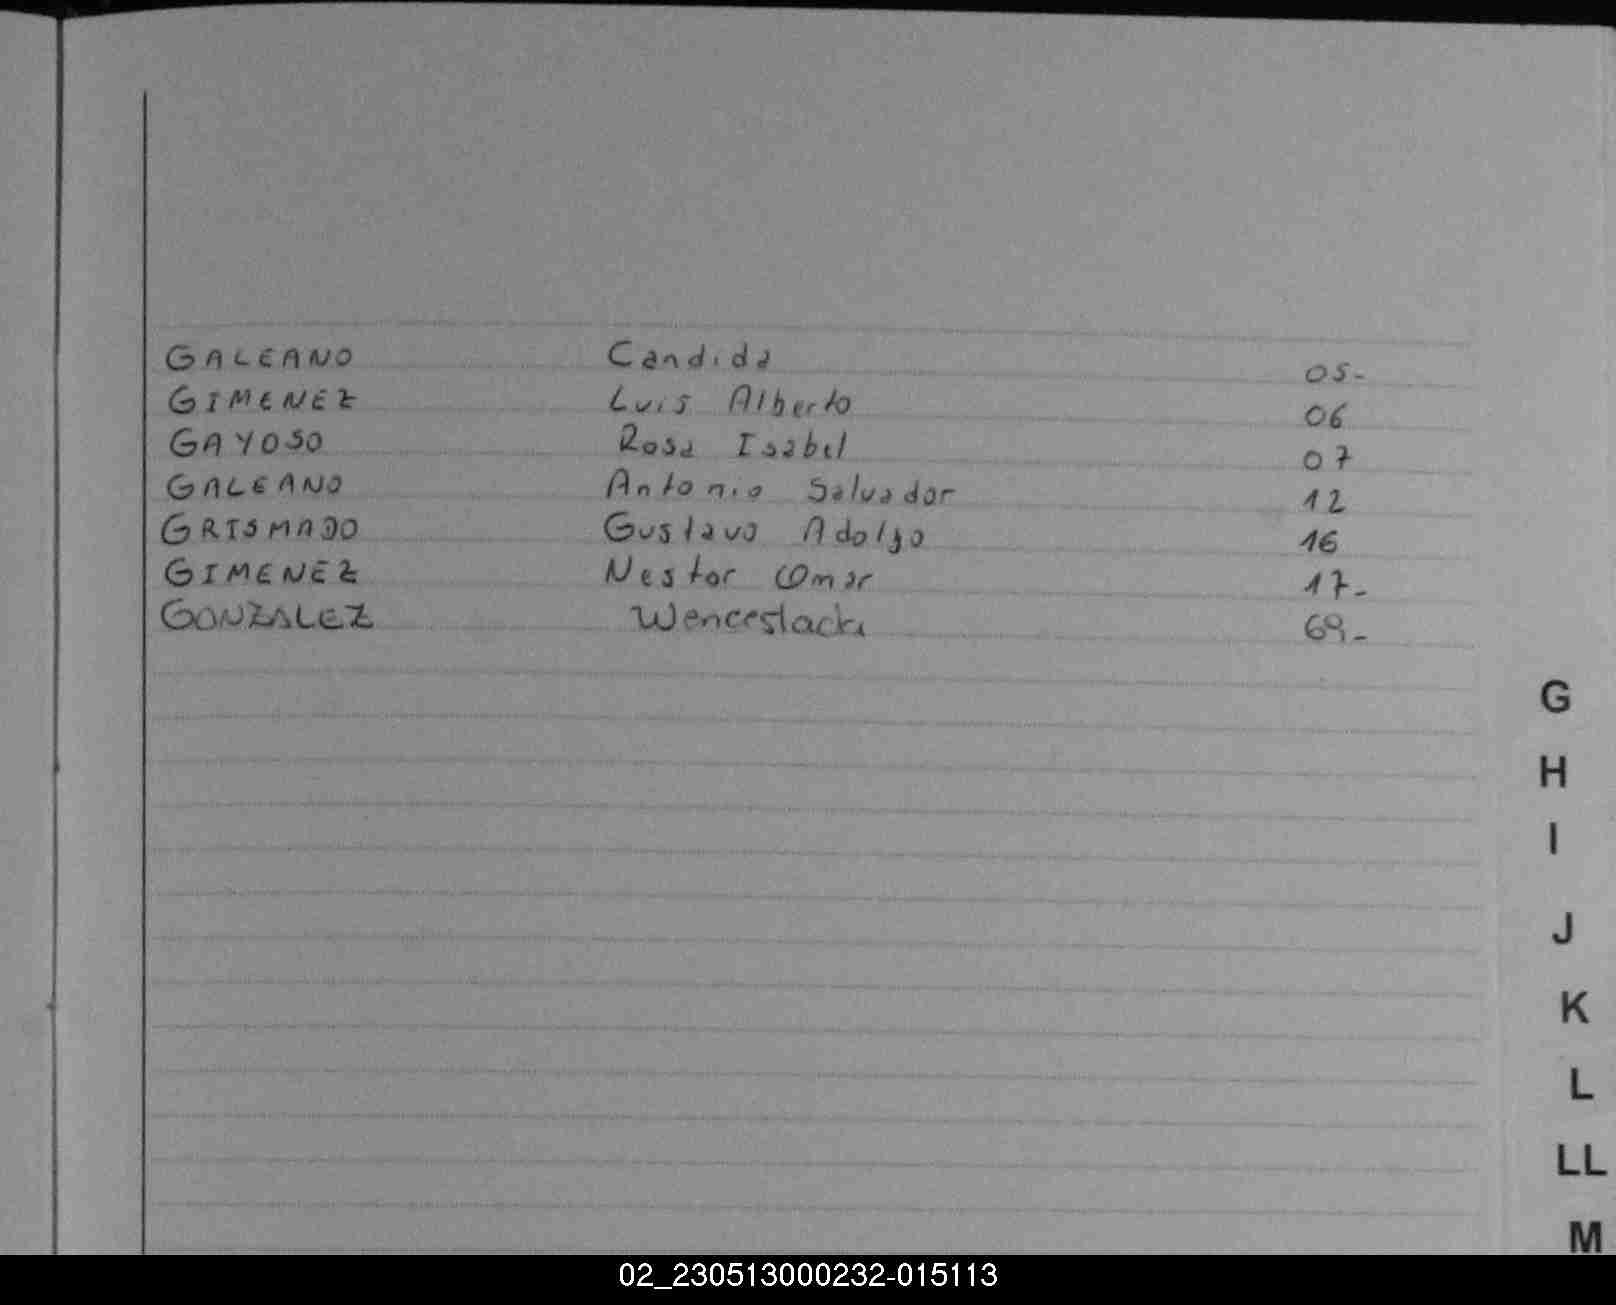 GALEANO Candida 05-
GIMENEZ Luis Alberto 06
GAYOSO Rosa Isabel 07
GALEANO Antonio Salvador 12
GRISMADO Gustavo Adolfo 16
GIMENEZ Nestor Omar 17-
GONZALEZ 69-
G
H
I
J
K
L
LL
M
02_230513000232-015113